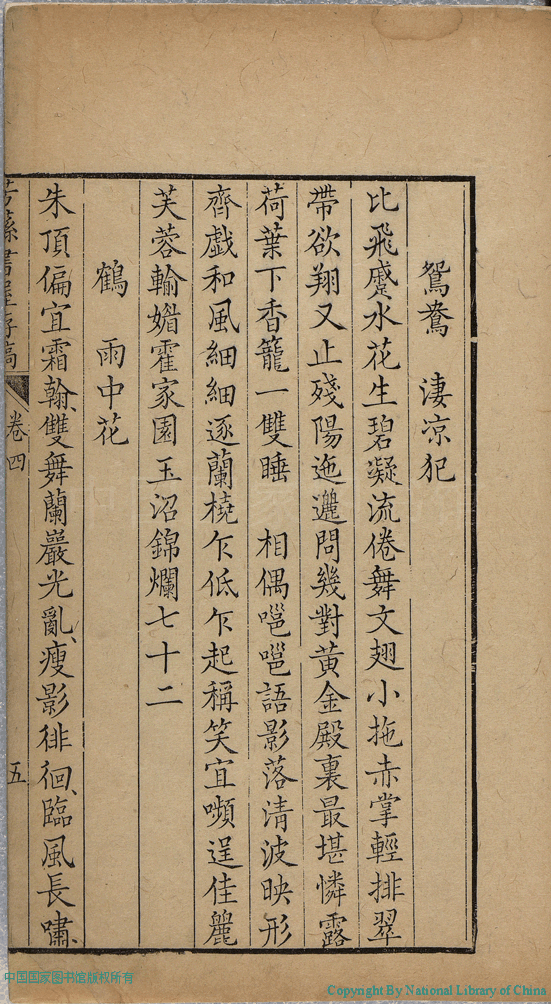 鴛鴦　淒凉犯
比飛蹙水花生碧凝流倦舞文翅小拖赤掌輕排翠
帶欲翔又止殘陽迤邐問幾對黃金殿裏最堪憐露
荷葉下香籠一雙睡　相偶嗈嗈語影落清波映形
齊戲和風細細逐蘭橈乍低乍起稱笑宜嚬逞佳麗
芙蓉輸媚霍家園玉沼錦爛七十二
鶴　雨中花
朱頂偏宜霜翰、雙舞蘭巖光亂、瘦影徘徊、臨風長嘯、
書屋存稿　卷四　五
中国国家图书馆版权所有
Copyright By National Library of China